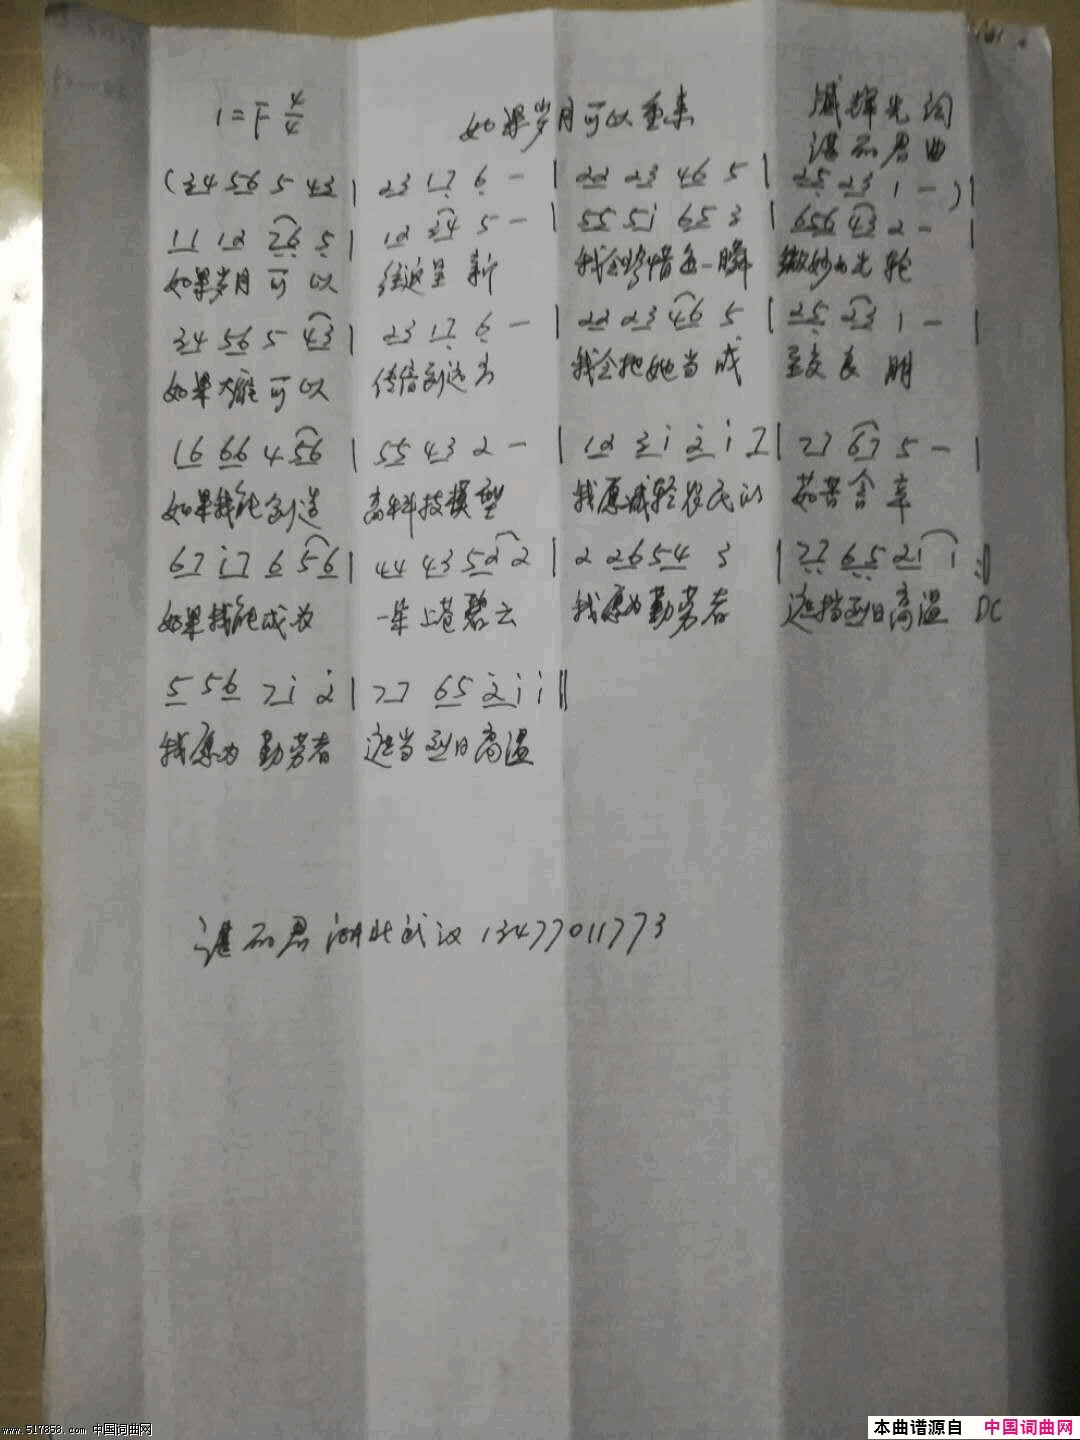 1=F 4/4
如果岁月可以重来
臧辉先词
谌丽君曲
(34 56 5 43 | 23 17 6 - | 22 23 46 5 | 25 23 1 - ) |
11 12 26 5 | 12 34 5 - | 55 5i 65 3 | 656 43 2 - |
如果岁月可以 往返呈新 我会珍惜每一瞬 微妙的光轮
34 56 5 43 | 23 17 6 - | 22 23 46 5 | 25 23 1 - |
如果大雁可以 传信到远方 我会把她当成 至交良朋
16 66 4 56 | 55 43 2 - | 12 3i 2 i 7 | 77 67 5 - |
如果我能创造 高科技模型 我愿减轻农民的 茹苦含辛
67 i7 6 56 | 44 43 52 2 | 2 2654 3 | 77 65 21 1 :||
如果我能成为 一朵上苍碧云 我愿为勤劳者 遮挡烈日高温 DC
5 56 7i 2 | 77 65 2i i ||
我愿为勤劳者 遮当烈日高温
谌丽君湖北武汉13477011773
www.517858.com 中国词曲网
本曲谱源自 中国词曲网